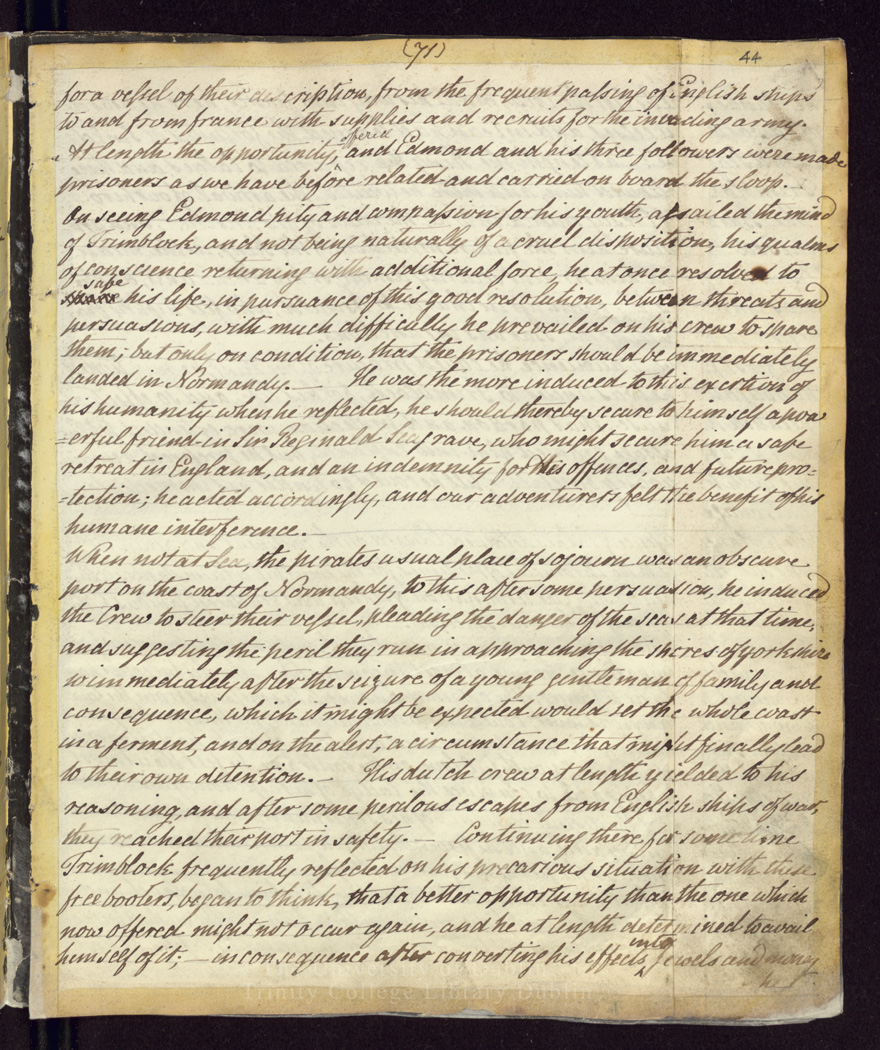 (71)
44
for a vessel of their description, from the frequent passing of English ships
to and from france with supplies and recruits for the invading army.
At length the opportunity, offered and Edmond and his three followers were made
prisoners as we have before related and carried on board the sloop.
On seeing Edmond pity and compassion for his youth, assailed the mind
of Trimblock, and not being naturally of a cruel disposition, his qualms
of conscience returning with additional force, he at once resolved to
safe his life, in pursuance of this good resolution, between threats and
persuasions, with much difficully he prevailed on his crew to spare
them; but only on condition, that the prisoners should be immediately
landed in Normandy. — He was the more induced to this exertion of
his humanity when he reflected, he should thereby secure to himself a pow
=erful friend in Sir Reginald Seagrave, who might secure him a safe
retreat in England, and an indemnity for His offences, and future pro=
=tection; he acted accordingly, and our adventurers felt the benefit of his
humane interference. —
When not at Sea, the pirates usual place of sojourn was an obscure
port on the coast of Normandy, to this after some persuasion, he induced
the Crew to steer their vessel, pleading the danger of the seas at that time,
and suggesting the peril they run in approaching the shores of yorkshire
immediately after the seizure of a young gentleman of family and
consequence, which it might be expected would set the whole coast
in a ferment, and on the alert, a circumstance that might finally lead
to their own detention. — His dutch crew at length yielded to his
reasoning, and after some perilous escapes from English ships of war,
they reached their port in safety. — Continuing there for some time
Trimblock frequently reflected on his precarious situation with these
freebooters, began to think, that a better opportunity than the one which
now offered might not occur again, and he at length determined to avail
himself of it; — in consequence after converting his effects into jewels and money
he
Trinity College Library Dublin